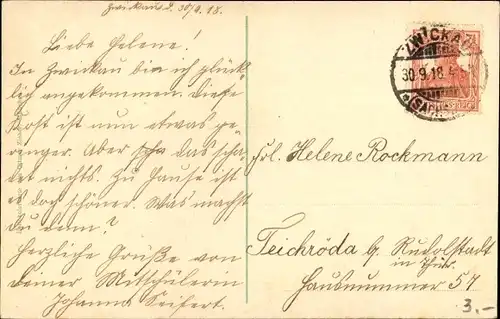 Zwickau d. 30/9.18.
Liebe Helene!
In Zwickau bin ich glück-
lich angekommen. Diese
Kost ist nun etwas ge-
ringer. Aber das scha-
det nichts. Zu Hause ist
es doch schöner. Was machst
du denn?
Herzliche Grüße von
deiner Mitschülerin
Johanna Seifert.
ZWICKAU
30.9.18
(SACHSEN)
Frl. Helene Rockmann
Teichröda b. Rudolstadt
in Thür.
Hausnummer 57
3.-